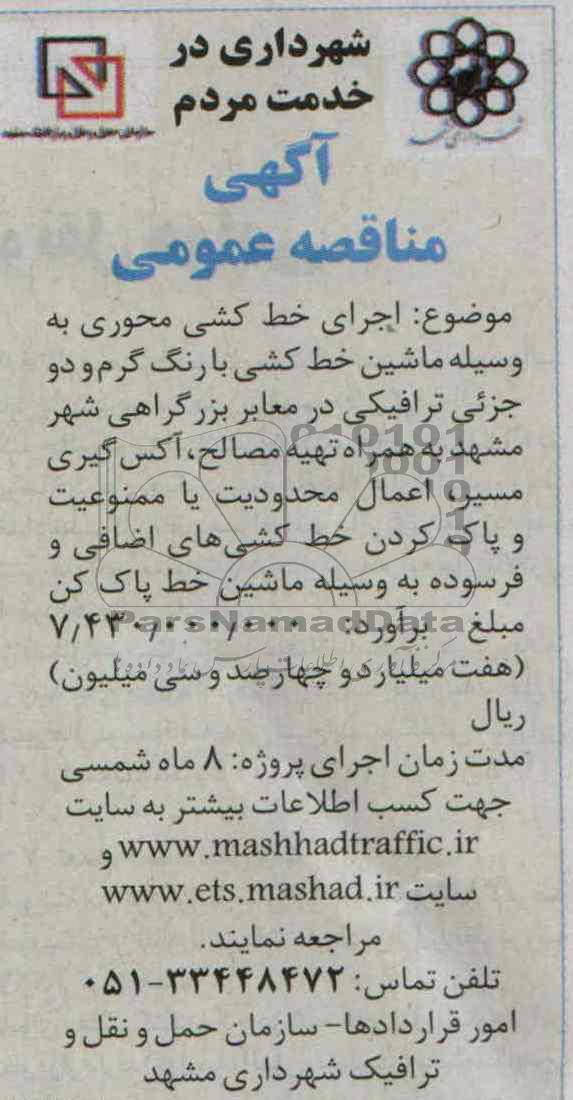 شهرداری در
خدمت مردم
آگهی
مناقصه عمومی
موضوع: اجرای خط کشی محوری به
وسیله ماشین خط کشی با رنگ گرم و دو
جزئی ترافیکی در معابر بزرگراهی شهر
مشهد به همراه تهیه مصالح، آکس گیری
مسیر، اعمال محدودیت یا ممنوعیت
و پاک کردن خط کشی‌های اضافی و
فرسوده به وسیله ماشین خط پاک کن
مبلغ برآورد: ۷/۴۳۰/۰۰۰/۰۰۰
ParsNamadData
(هفت میلیارد و چهارصد و سی میلیون)
ریال
مدت زمان اجرای پروژه: ۸ ماه شمسی
جهت کسب اطلاعات بیشتر به سایت
www.mashhadtraffic.ir و
سایت www.ets.mashad.ir
مراجعه نمایند.
تلفن تماس: ۳۳۴۴۸۴۷۲-۰۵۱
امور قراردادها- سازمان حمل و نقل و
ترافیک شهرداری مشهد